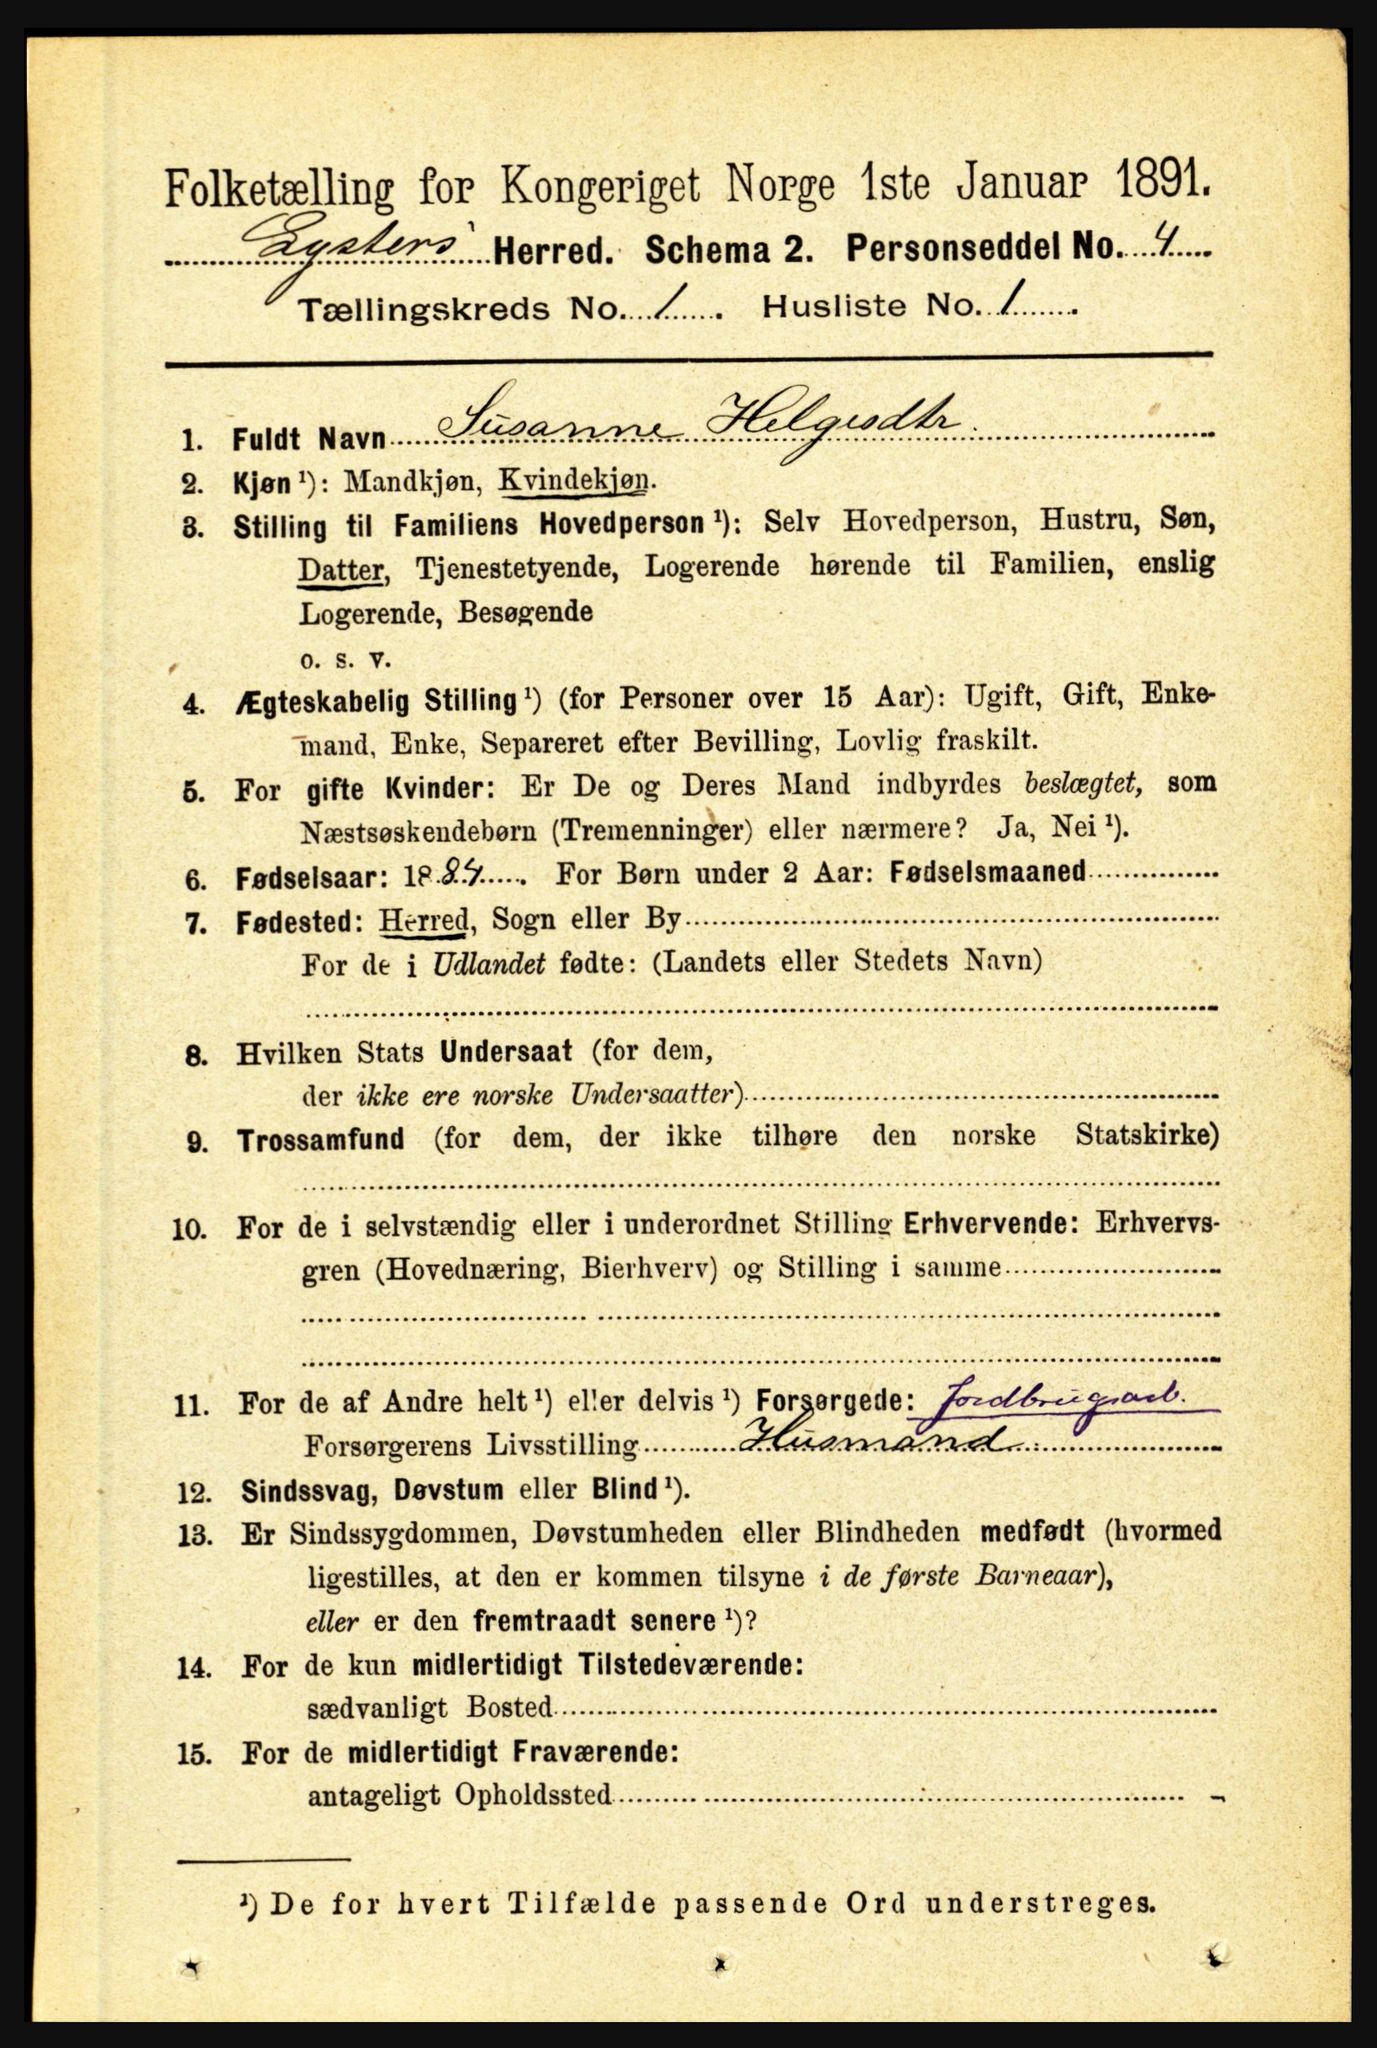 Folketælling for Kongeriget Norge 1ste Januar 1891.
Lysters Herred. Schema 2. Personseddel No. 4
Tællingskreds No. 1. Husliste No. 1.
1. Fuldt Navn Susanne Helgesdtr.
2. Kjøn ¹): Mandkjøn, Kvindekjøn.
3. Stilling til Familiens Hovedperson ¹): Selv Hovedperson, Hustru, Søn,
Datter, Tjenestetyende, Logerende hørende til Familien, enslig
Logerende, Besøgende
o. s. v.
4. Ægteskabelig Stilling ¹) (for Personer over 15 Aar): Ugift, Gift, Enke-
mand, Enke, Separeret efter Bevilling, Lovlig fraskilt.
5. For gifte Kvinder: Er De og Deres Mand indbyrdes beslægtet, som
Næstsøskendebørn (Tremenninger) eller nærmere? Ja, Nei ¹).
6. Fødselsaar: 1884. For Børn under 2 Aar: Fødselsmaaned
7. Fødested: Herred, Sogn eller By
For de i Udlandet fødte: (Landets eller Stedets Navn)
8. Hvilken Stats Undersaat (for dem,
der ikke ere norske Undersaatter)
9. Trossamfund (for dem, der ikke tilhøre den norske Statskirke)
10. For de i selvstændig eller i underordnet Stilling Erhvervende: Erhvervs-
gren (Hovednæring, Bierhverv) og Stilling i samme
11. For de af Andre helt ¹) eller delvis ¹) Forsørgede: Jordbrugsarb.
Forsørgerens Livsstilling Husmand
12. Sindssvag, Døvstum eller Blind ¹).
13. Er Sindssygdommen, Døvstumheden eller Blindheden medfødt (hvormed
ligestilles, at den er kommen tilsyne i de første Barneaar),
eller er den fremtraadt senere ¹)?
14. For de kun midlertidigt Tilstedeværende:
sædvanligt Bosted
15. For de midlertidigt Fraværende:
antageligt Opholdssted
¹) De for hvert Tilfælde passende Ord understreges.